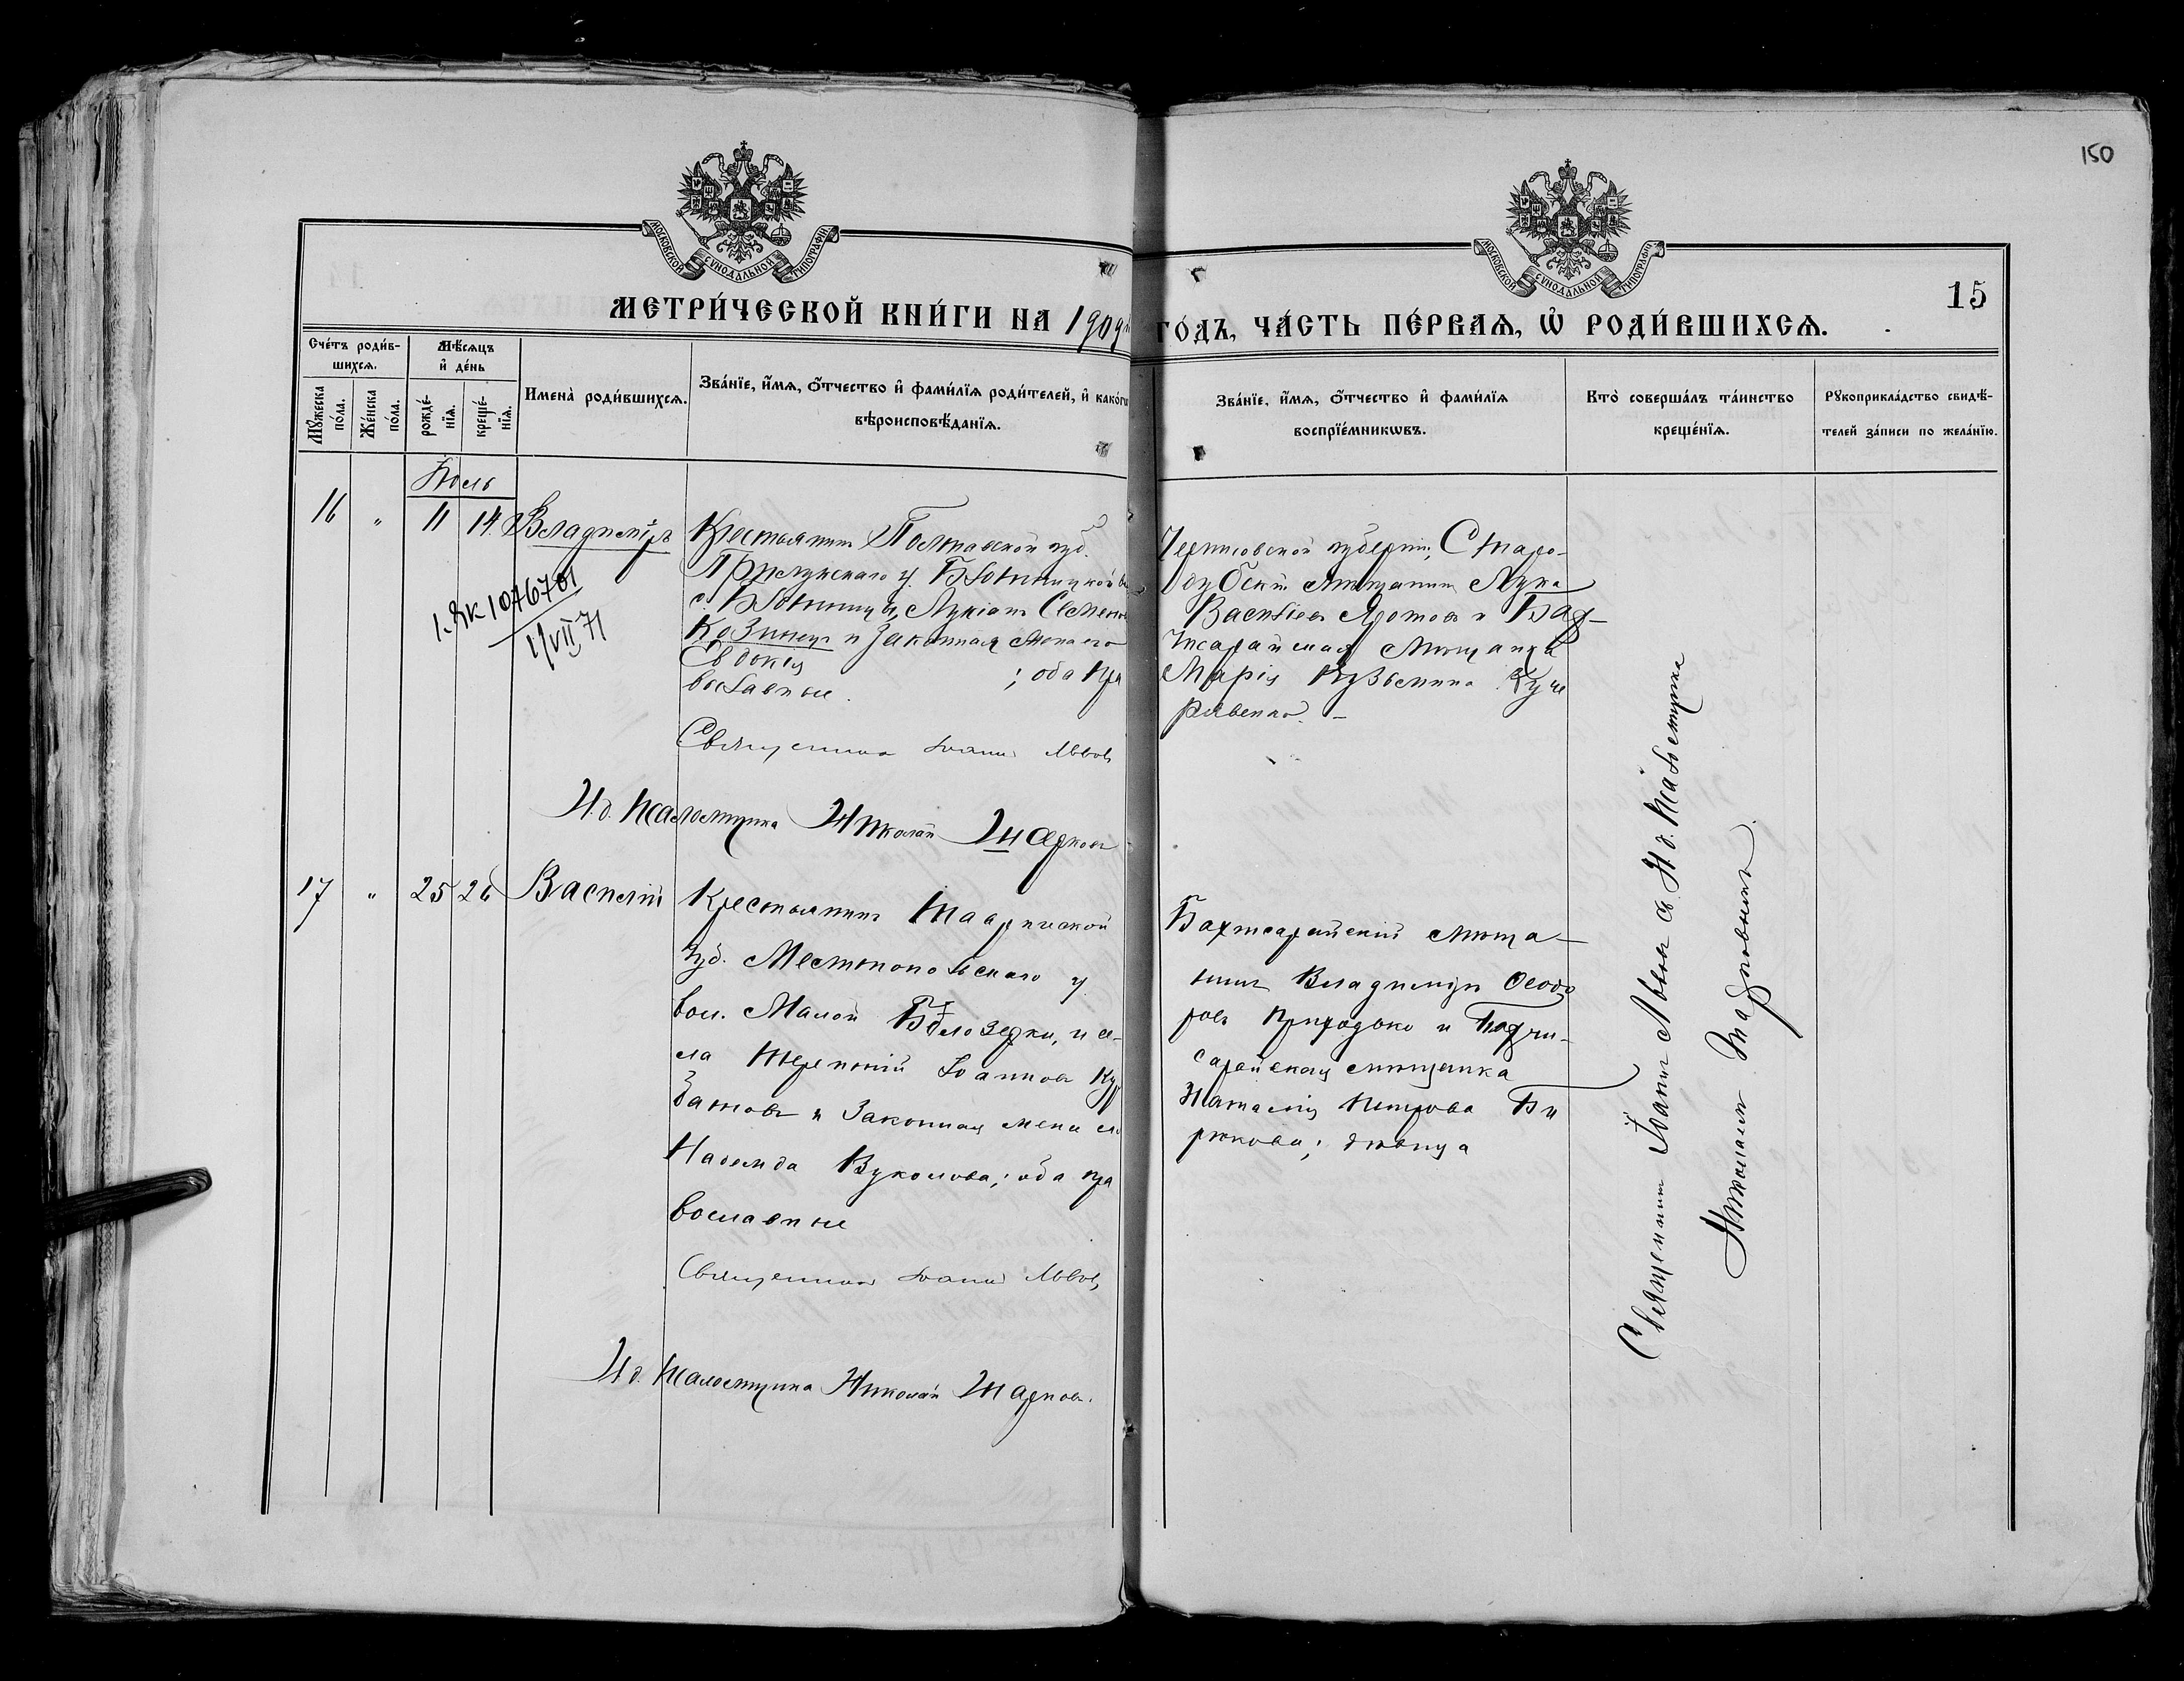 150
МОСКОВСКОЙ СѴНОДАЛЬНОЙ ТИПОГРАФІИ
МОСКОВСКОЙ СѴНОДАЛЬНОЙ ТИПОГРАФІИ
15
МЕТРИ́ЧЕСКОЙ КНИ́ГИ НА 1909й ГО́ДЪ, ЧА́СТЬ ПЕ́РВАѦ, Ѡ҆ РОДИ́ВШИХСѦ.
Сче́тъ роди́в-
шихсѧ.
Мꙋ́жеска по́ла.
Же́нска по́ла.
Мѣ́сѧцъ
и҆ де́нь
рожде́-
нїѧ.
креще́-
нїѧ.
Имена̀ роди́вшихсѧ.
Зва́нїе, и҆́мѧ, ѻ҆́тчество и҆ фами́лїѧ роди́телей, и҆ како́гѡ
вѣроисповѣ́данїѧ.
Зва́нїе, и҆́мѧ, ѻ҆́тчество и҆ фами́лїѧ
воспрїе́мникѡвъ.
Кто̀ соверша́лъ та́инство
креще́нїѧ.
Рꙋкоприкла́дство свидѣ́-
телей за́писи по жела́нїю.
Июль
16 " 11 14 Владиміръ
1.ЯК 1046701
1/VII 71
Крестьянинъ Полтавской губ.
Прилукскаго у.
с. Лукіанъ Семеновъ
Козинецъ и законная жена его
Евдокія ; оба пра
вославные.
Священникъ Іоаннъ Львовъ
И.д. псаломщика Николай Шадринъ
Черниговской губерніи, Старо-
дубскій мѣщанинъ Лука
Васильевъ и Бах-
чисарайская мѣщанка
Марія Кузьмина Куче
рявенко. –
17 " 25 26 Василій
Крестьянинъ Таврической
губ. Мелитопольскаго у.
вол. Малой Бѣлозерки, и се-
ла Терентій Іоанновъ Кур
батовъ и законная жена его
Надежда Вуколова; оба пра
вославные
Священникъ Іоаннъ Львовъ
И.д. псаломщика Николай
Бахчисарайскій мѣща-
нинъ Владиміръ Ѳеодо
ровъ Приходько и Бахчи-
сарайская мѣщанка
Наталія Петрова Би
рюкова; дѣвица
Священникъ Іоаннъ Львовъ съ И.д. псаломщика
Николаемъ